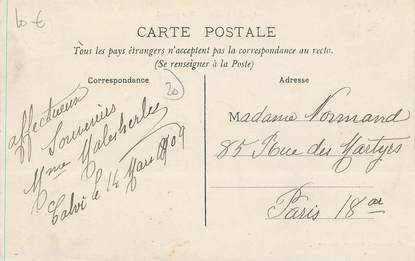 10 €
CARTE POSTALE
Tous les pays étrangers n'acceptent pas la correspondance au recto.
(Se renseigner à la Poste)
Correspondance
20
affectueux
Souvenirs
Mme Malesherbes
Calvi le 14 Mars 1909
Adresse
Madame Normand
85 Rue des Martyrs
Paris 18ar